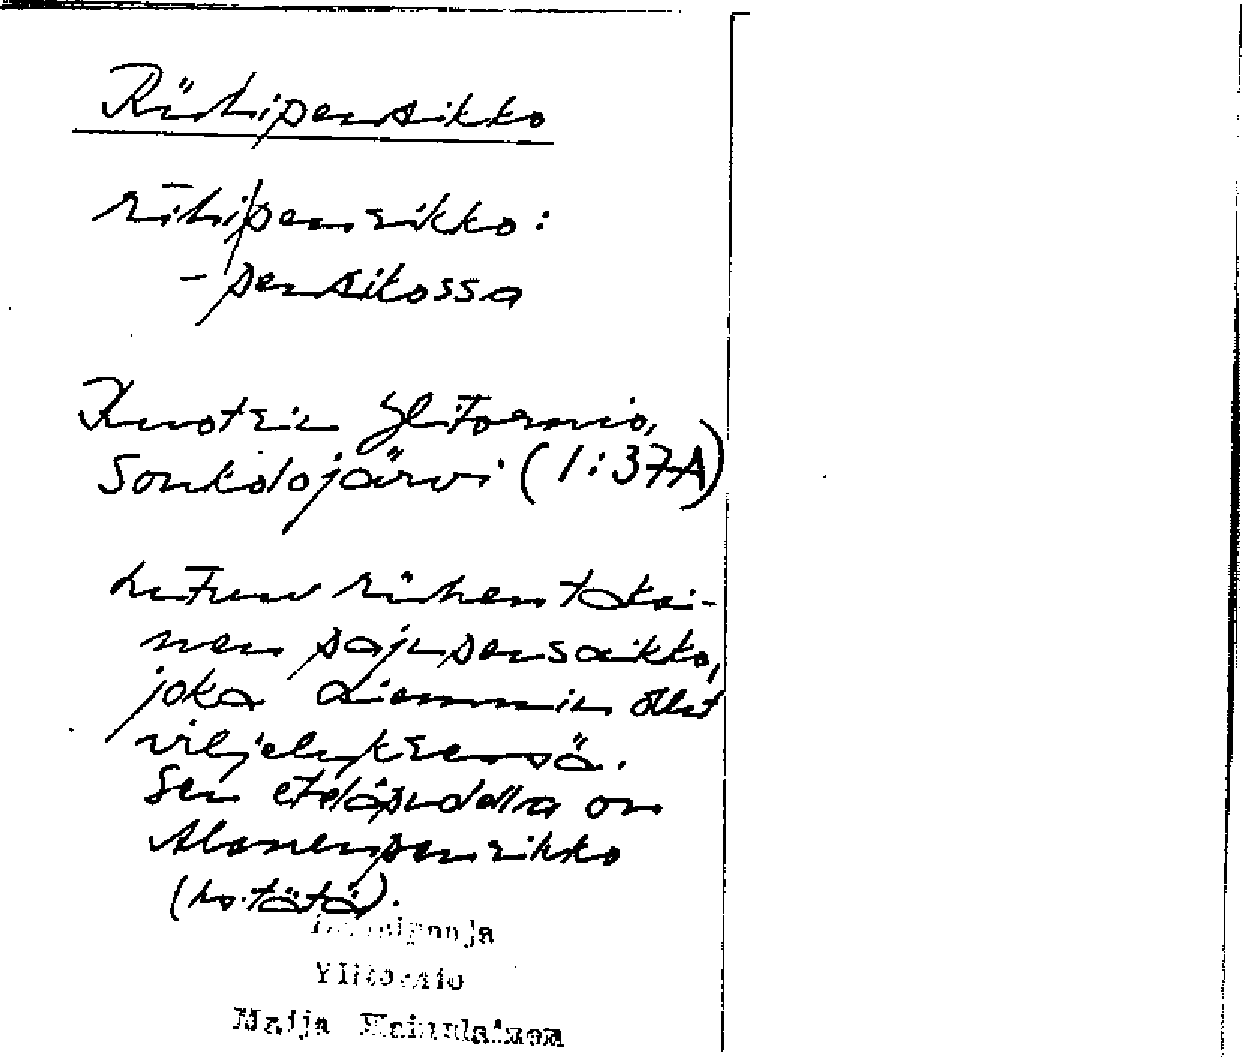 Riihipensikko
riihipensikko:
- pensikossa
Ruotsin Ylitornio,
Soukolojärvi (1:37A)
riihen takai-
nen pajupensaikko,
joka aiemmin ollut
viljelyksenä.
Sen eteläpuolella on
Alanenpensikko
(ks. tätä).
Ylitornio
Maija